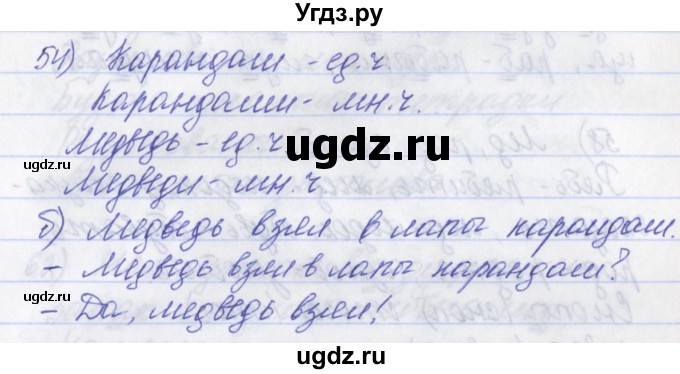 Угдз.ру
54) Карандаш - ед.ч.
Карандаши - мн.ч.
Медведь - ед.ч.
Медведи - мн.ч.
б) Медведь взял в лапы карандаш.
- Медведь взял в лапы карандаш?
- Да, медведь взял!
ugdz.ru
ugdz.ru
ugdz.ru
ugdz.ru
ugdz.ru
ugdz.ru